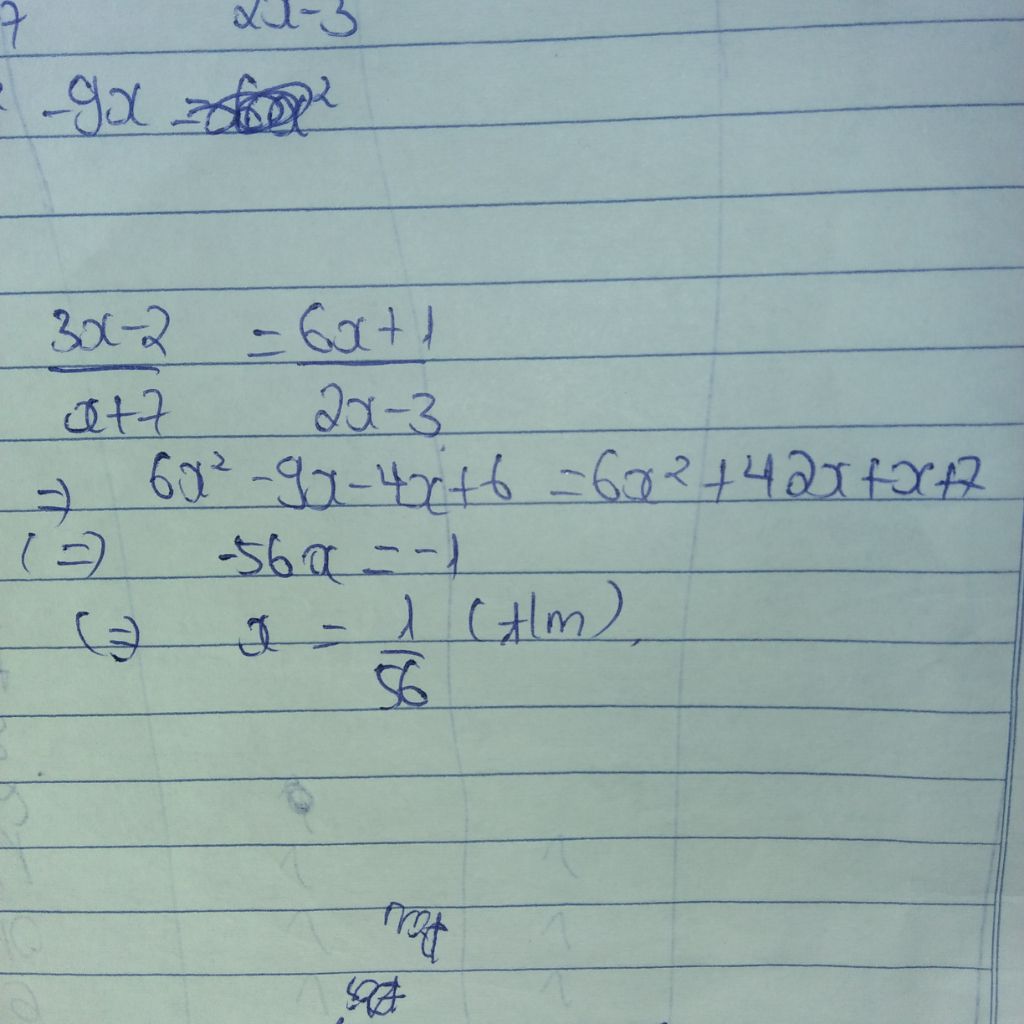 7 2x-3
-9x =
3x-2 = 6x+1
x+7 2x-3
=> 6x² -9x-4x+6 =6x²+42x+x+7
(=) -56x = -1
(=) x = 1/56 (t/m).